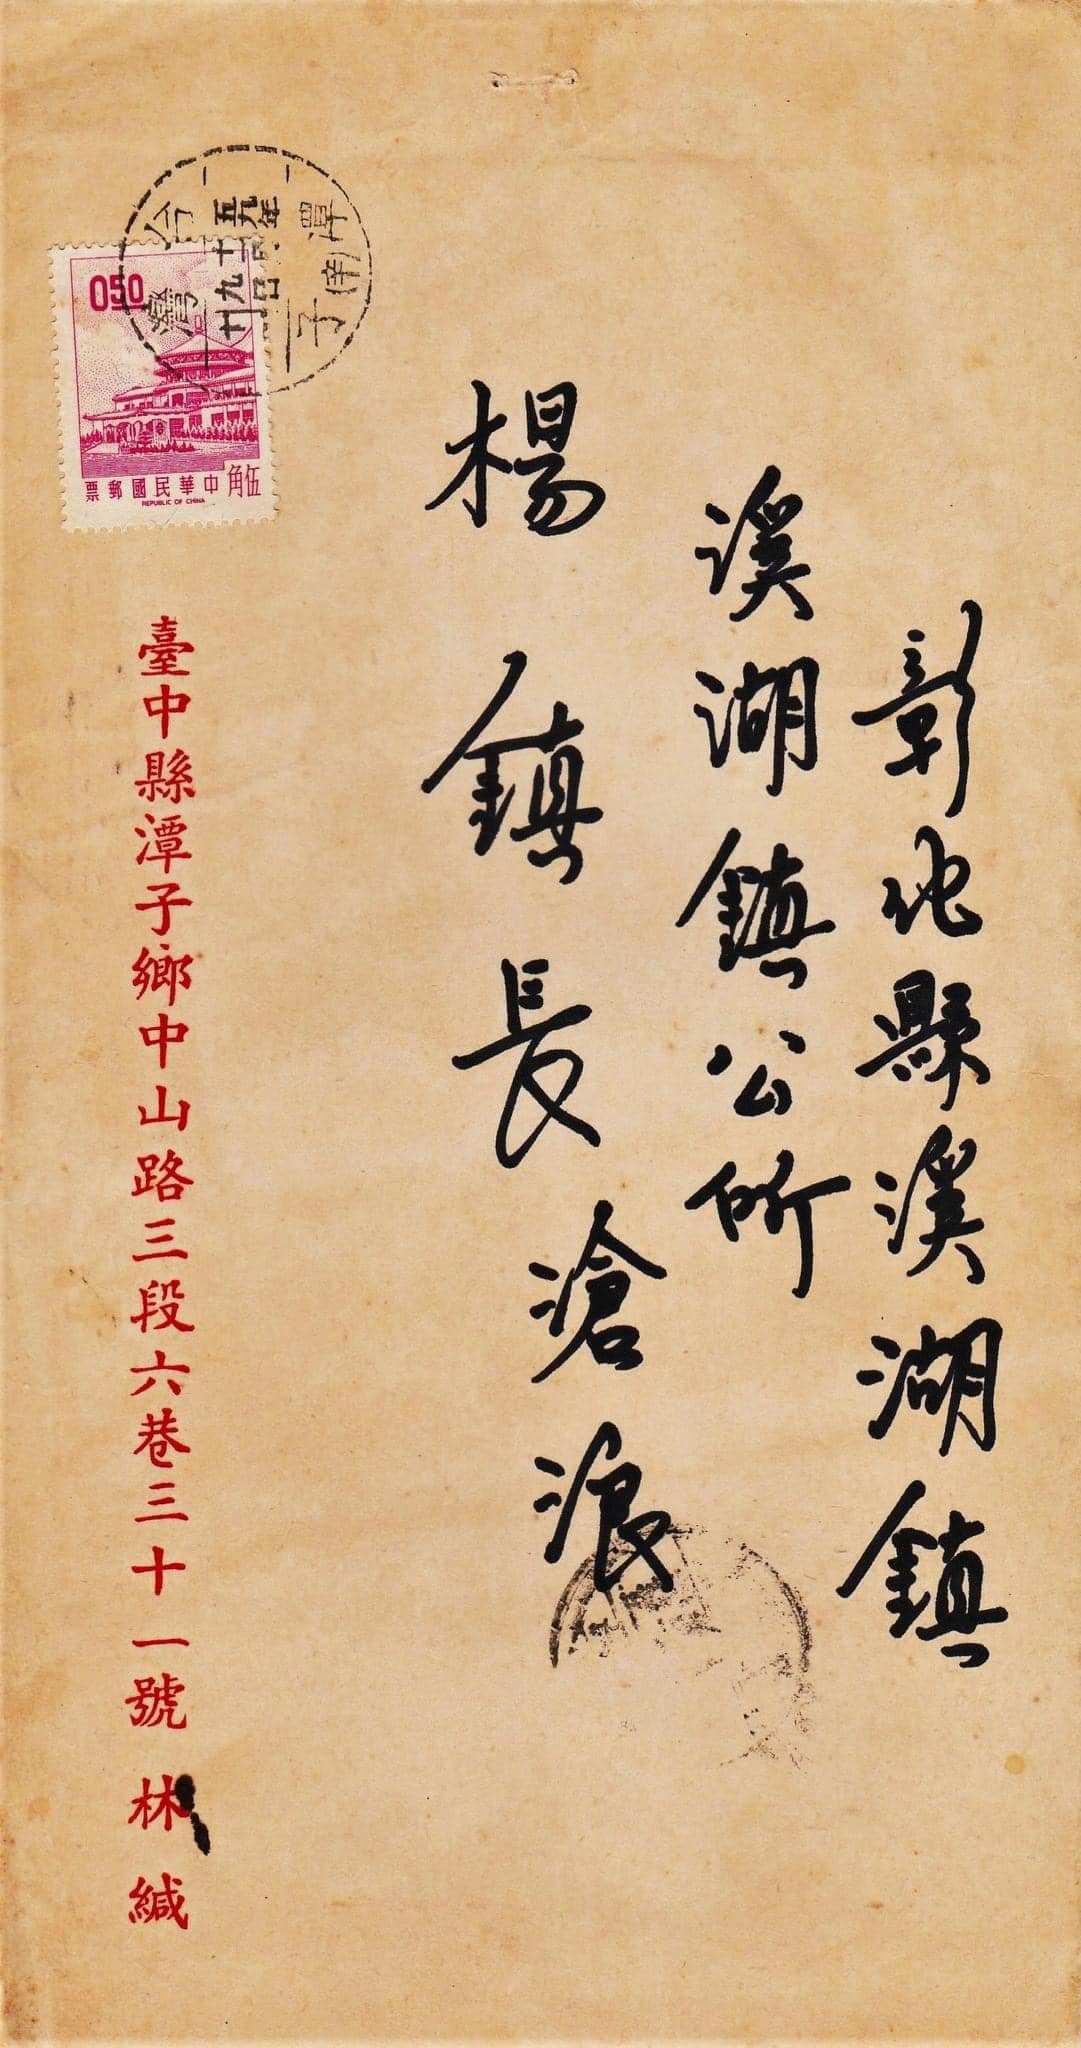 彰化縣溪湖鎮
溪湖鎮公所
楊鎮長滄浪
050
伍角中華民國郵票
REPUBLIC OF CHINA
臺灣
潭子
五九年
臺中縣潭子鄉中山路三段六巷三十一號 林緘